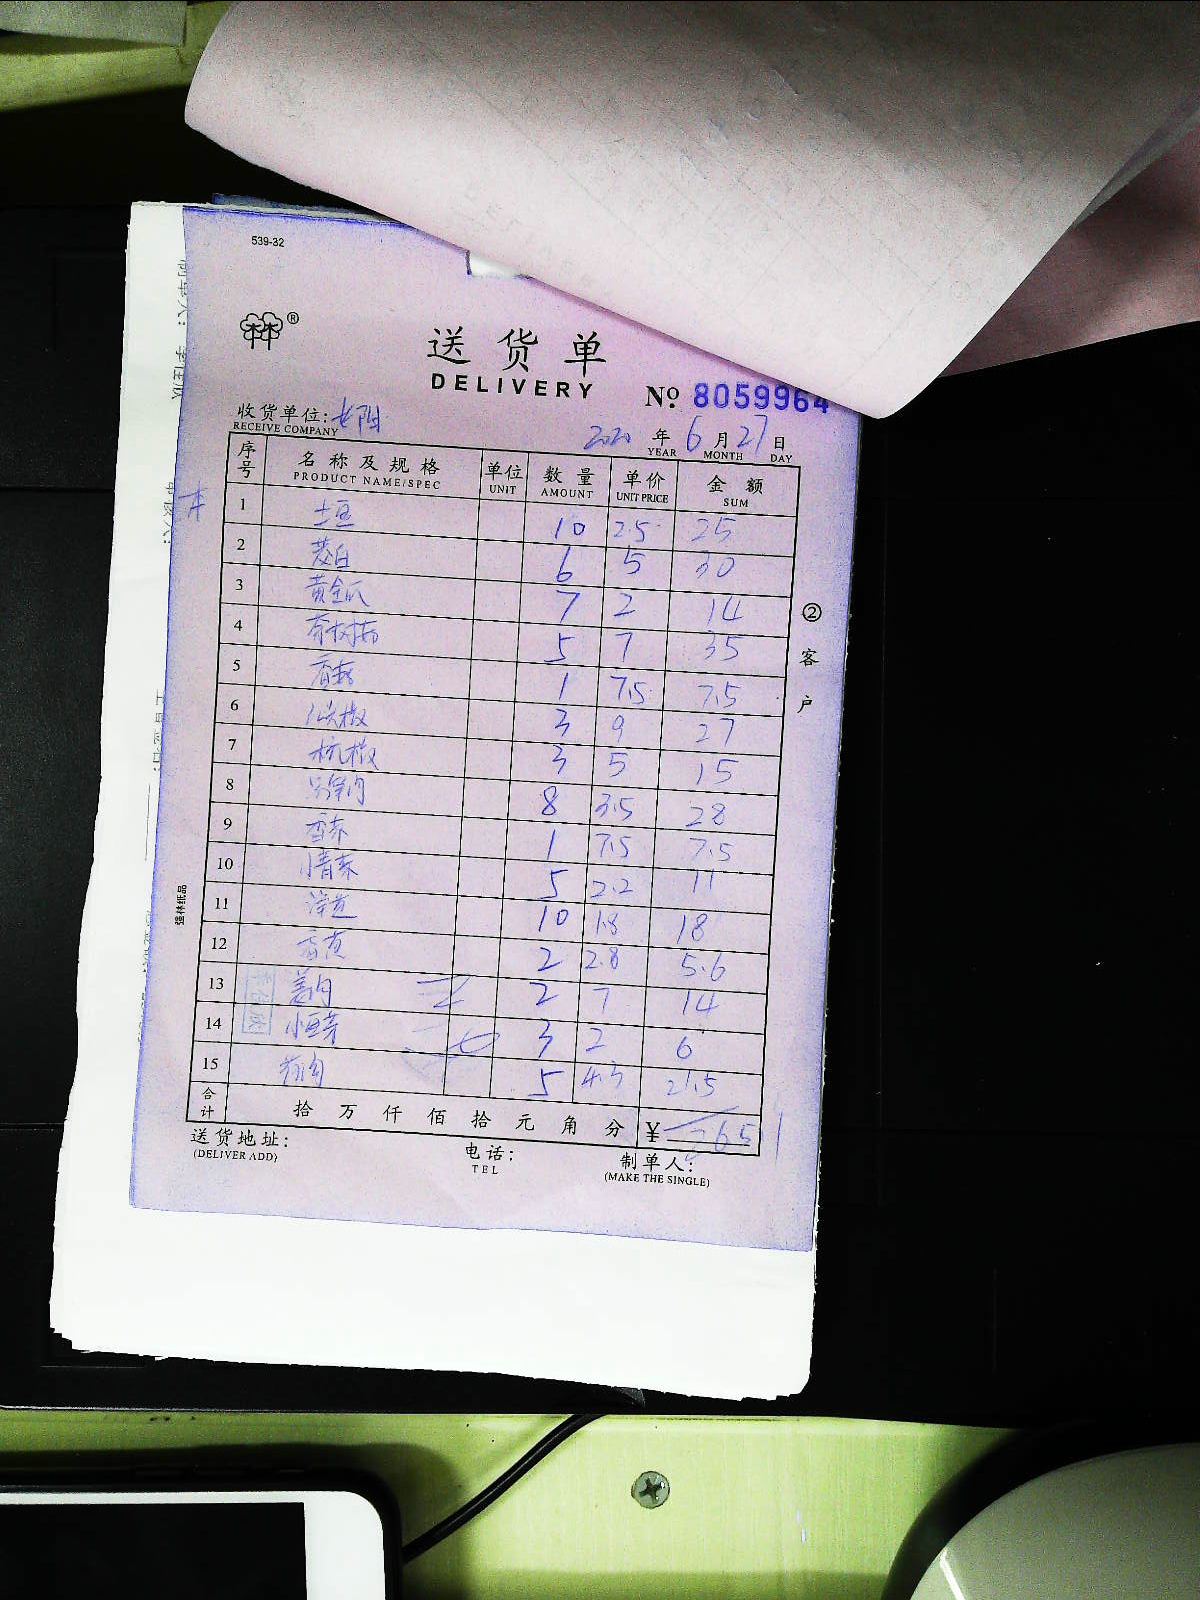 539-32
林®
送货单
DELIVERY
№ 8059964
收货单位:长阳
RECEIVE COMPANY
2020 年 6 月 27 日
YEAR MONTH DAY
序号 名称及规格 单位 数量 单价 金额
PRODUCT NAME/SPEC UNIT AMOUNT UNIT PRICE SUM
1 土豆 10 2.5 25
2 茭白 6 5 30
3 黄金瓜 7 2 14
4 茶树菇 5 7 35
5 香菇 1 7.5 7.5
6 椒 3 9 27
7 杭椒 3 5 15
8 8 3.5 28
9 香 1 7.5 7.5
10 小青菜 5 2.2 11
11 洋芋 10 1.8 18
12 2 2.8 5.6
13 姜 2 7 14
14 小 3 2 6
15 5 4.3 21.5
合计 拾 万 仟 佰 拾 元 角 分 ¥ 265.1
送货地址:
(DELIVER ADD)
电话:
TEL
制单人:
(MAKE THE SINGLE)
②客户
强林纸品